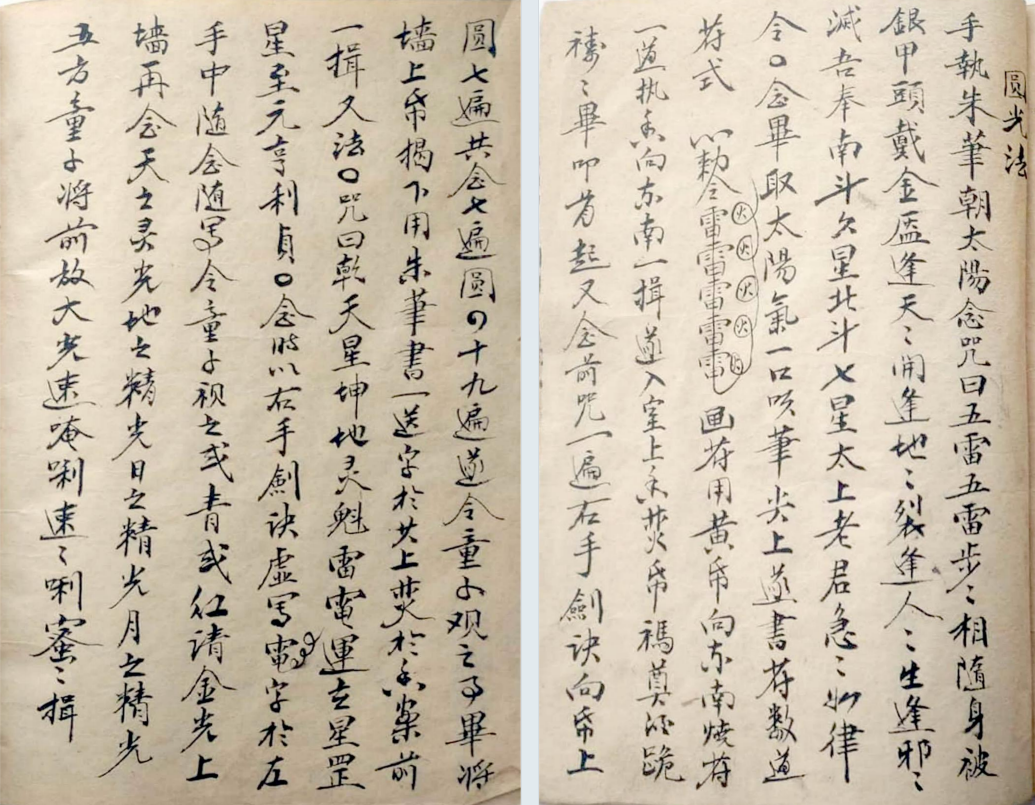 圆光法
手執朱筆朝太陽念咒曰五雷五雷步〻相隨身被
銀甲頭戴金盔逢天〻開逢地〻裂逢人〻生逢邪〻
滅吾奉南斗六星北斗七星太上老君急〻如律
令〇念畢取太陽氣一口吹筆尖上遂書符數道
符式 勅令雷雷雷雷電 火火火火 画符用黄帋向东南燒符
一道执香向东南一揖遂入室上香焚帋禡奠酒跪
祷〻畢叩首起又念前咒一遍右手劍訣向帋上
圆七遍共念七遍圆四十九遍遂令童子观之了畢将
墙上帋揭下用朱筆書一送字於其上焚於香案前
一揖 又法〇咒曰乾天星坤地灵魁雷電運玄星罡
星至元亨利貞〇念時以右手劍訣虚写電字於左
手中随念随写令童子视之或青或红請金光上
墙再念天之灵光地之精光日之精光月之精光
五方童子将前放大光速唵唎速〻唎蜜〻揖